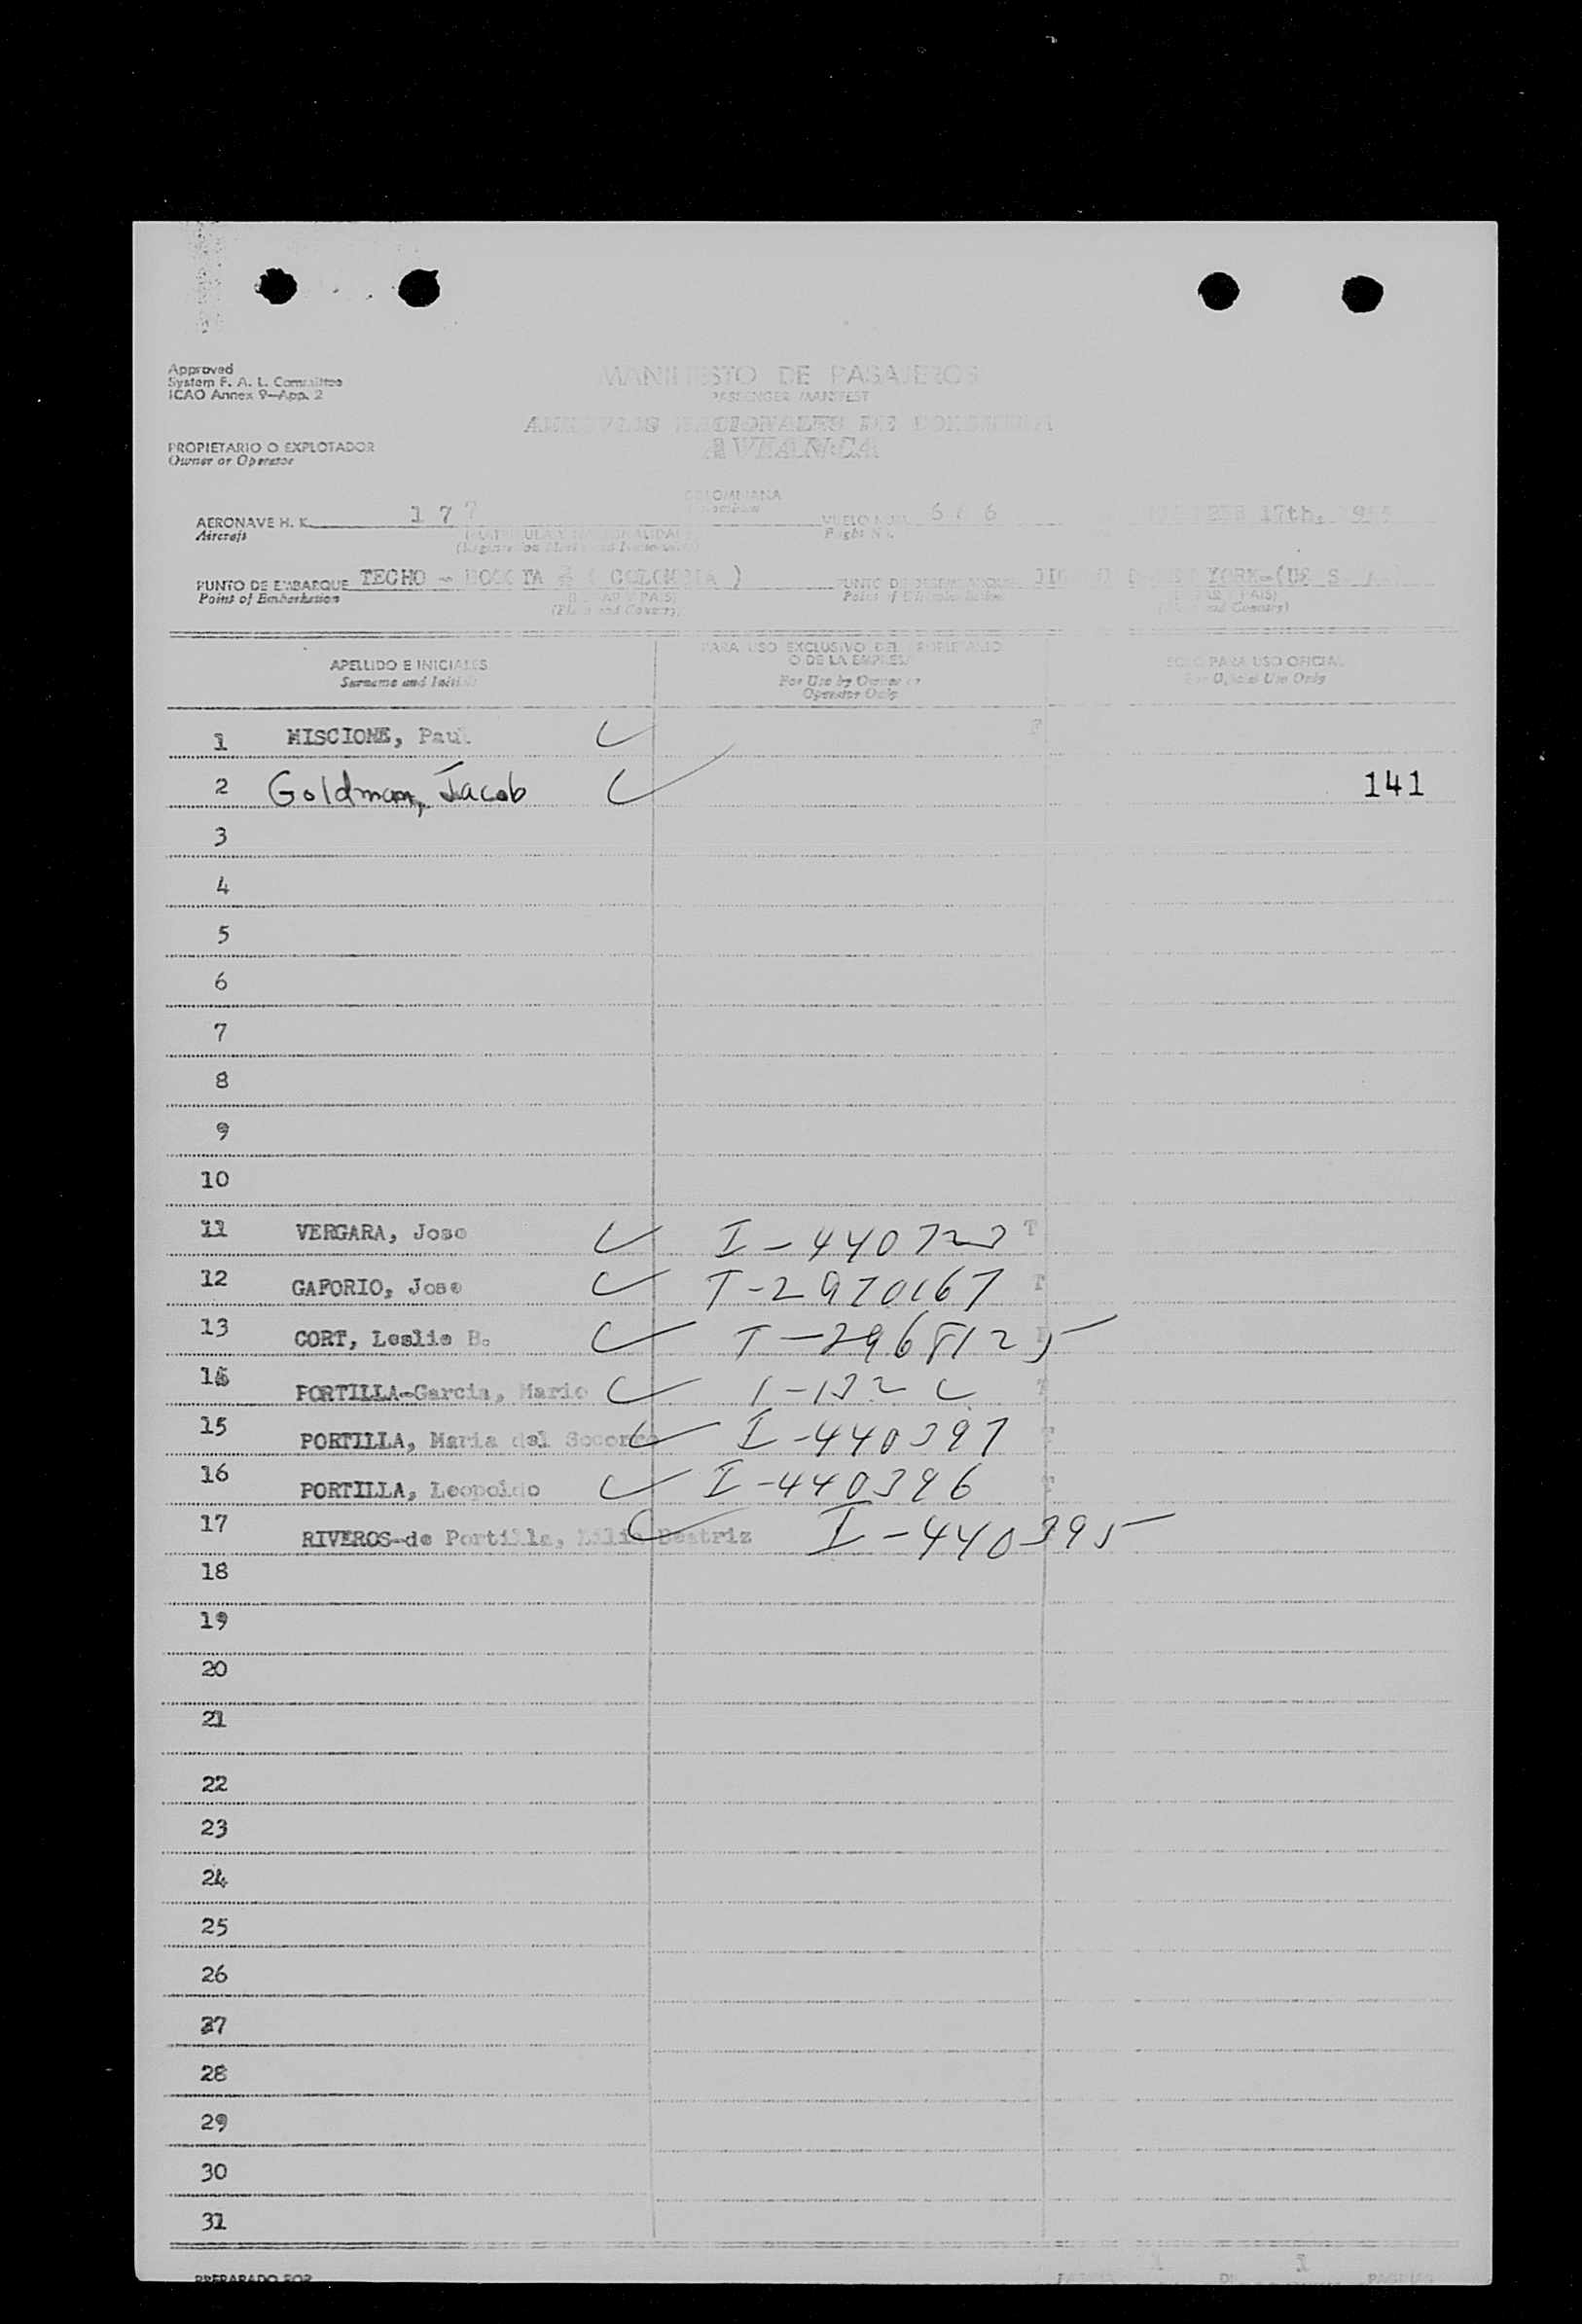 Approved
System F. A. L. Committee
ICAO Annex 9-App. 2
MANIFIESTO DE PASAJEROS
PASSENGER MANIFEST
AEROVIAS NACIONALES DE COLOMBIA
AVIANCA
PROPIETARIO O EXPLOTADOR
Owner or Operator
COLOMBIANA
AERONAVE H. K. 177 VUELO 17th,
Aircraft Flight
PUNTO DE EMBARQUE TECHO - BOGOTA ( COLOMBIA ) PUNTO YORK-(U
Point of Embarkation Point of
(Place and Country)
APELLIDO E INICIALES PARA USO EXCLUSIVO DEL PROPIETARIO SOLO PARA USO OFICIAL
O DE LA EMPRESA
Surname and Initials For Use by Owner or For Official Use Only
Operator Only
1 MISCIONE, Paul
2 Goldman, Jacob 141
3
4
5
6
7
8
9
10
11 VERGARA, Jose I-440723 T
12 GAFORIO, Jose T-2970167 T
13 CORT, Leslie B. T-2968125
14 PORTILLA-Garcia, Mario T
15 PORTILLA, Maria del Socorro I-440397 T
16 PORTILLA, Leopoldo I-440396 T
17 RIVEROS-de Portilla, Lilia Beatriz I-440395
18
19
20
21
22
23
24
25
26
27
28
29
30
31
PREPARADO POR 1 DE 1 PAGINAS